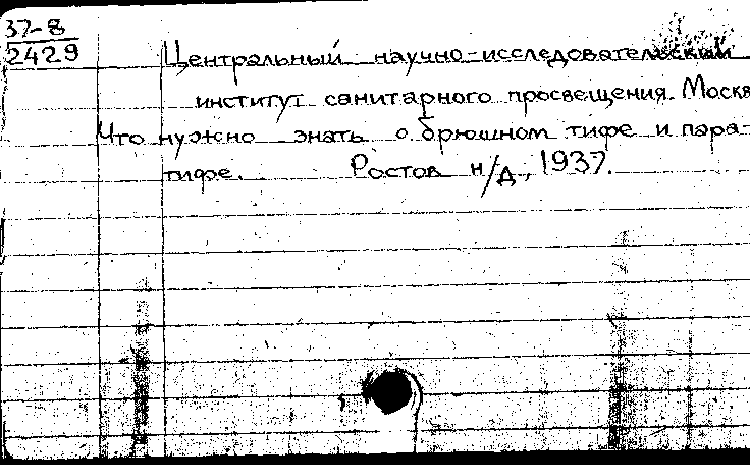 37-8
2429
Центральный научно-исследовательский
институт санитарного просвещения. Москва
Что нужно знать о брюшном тифе и пара-
тифе. Ростов н/Д, 1937.